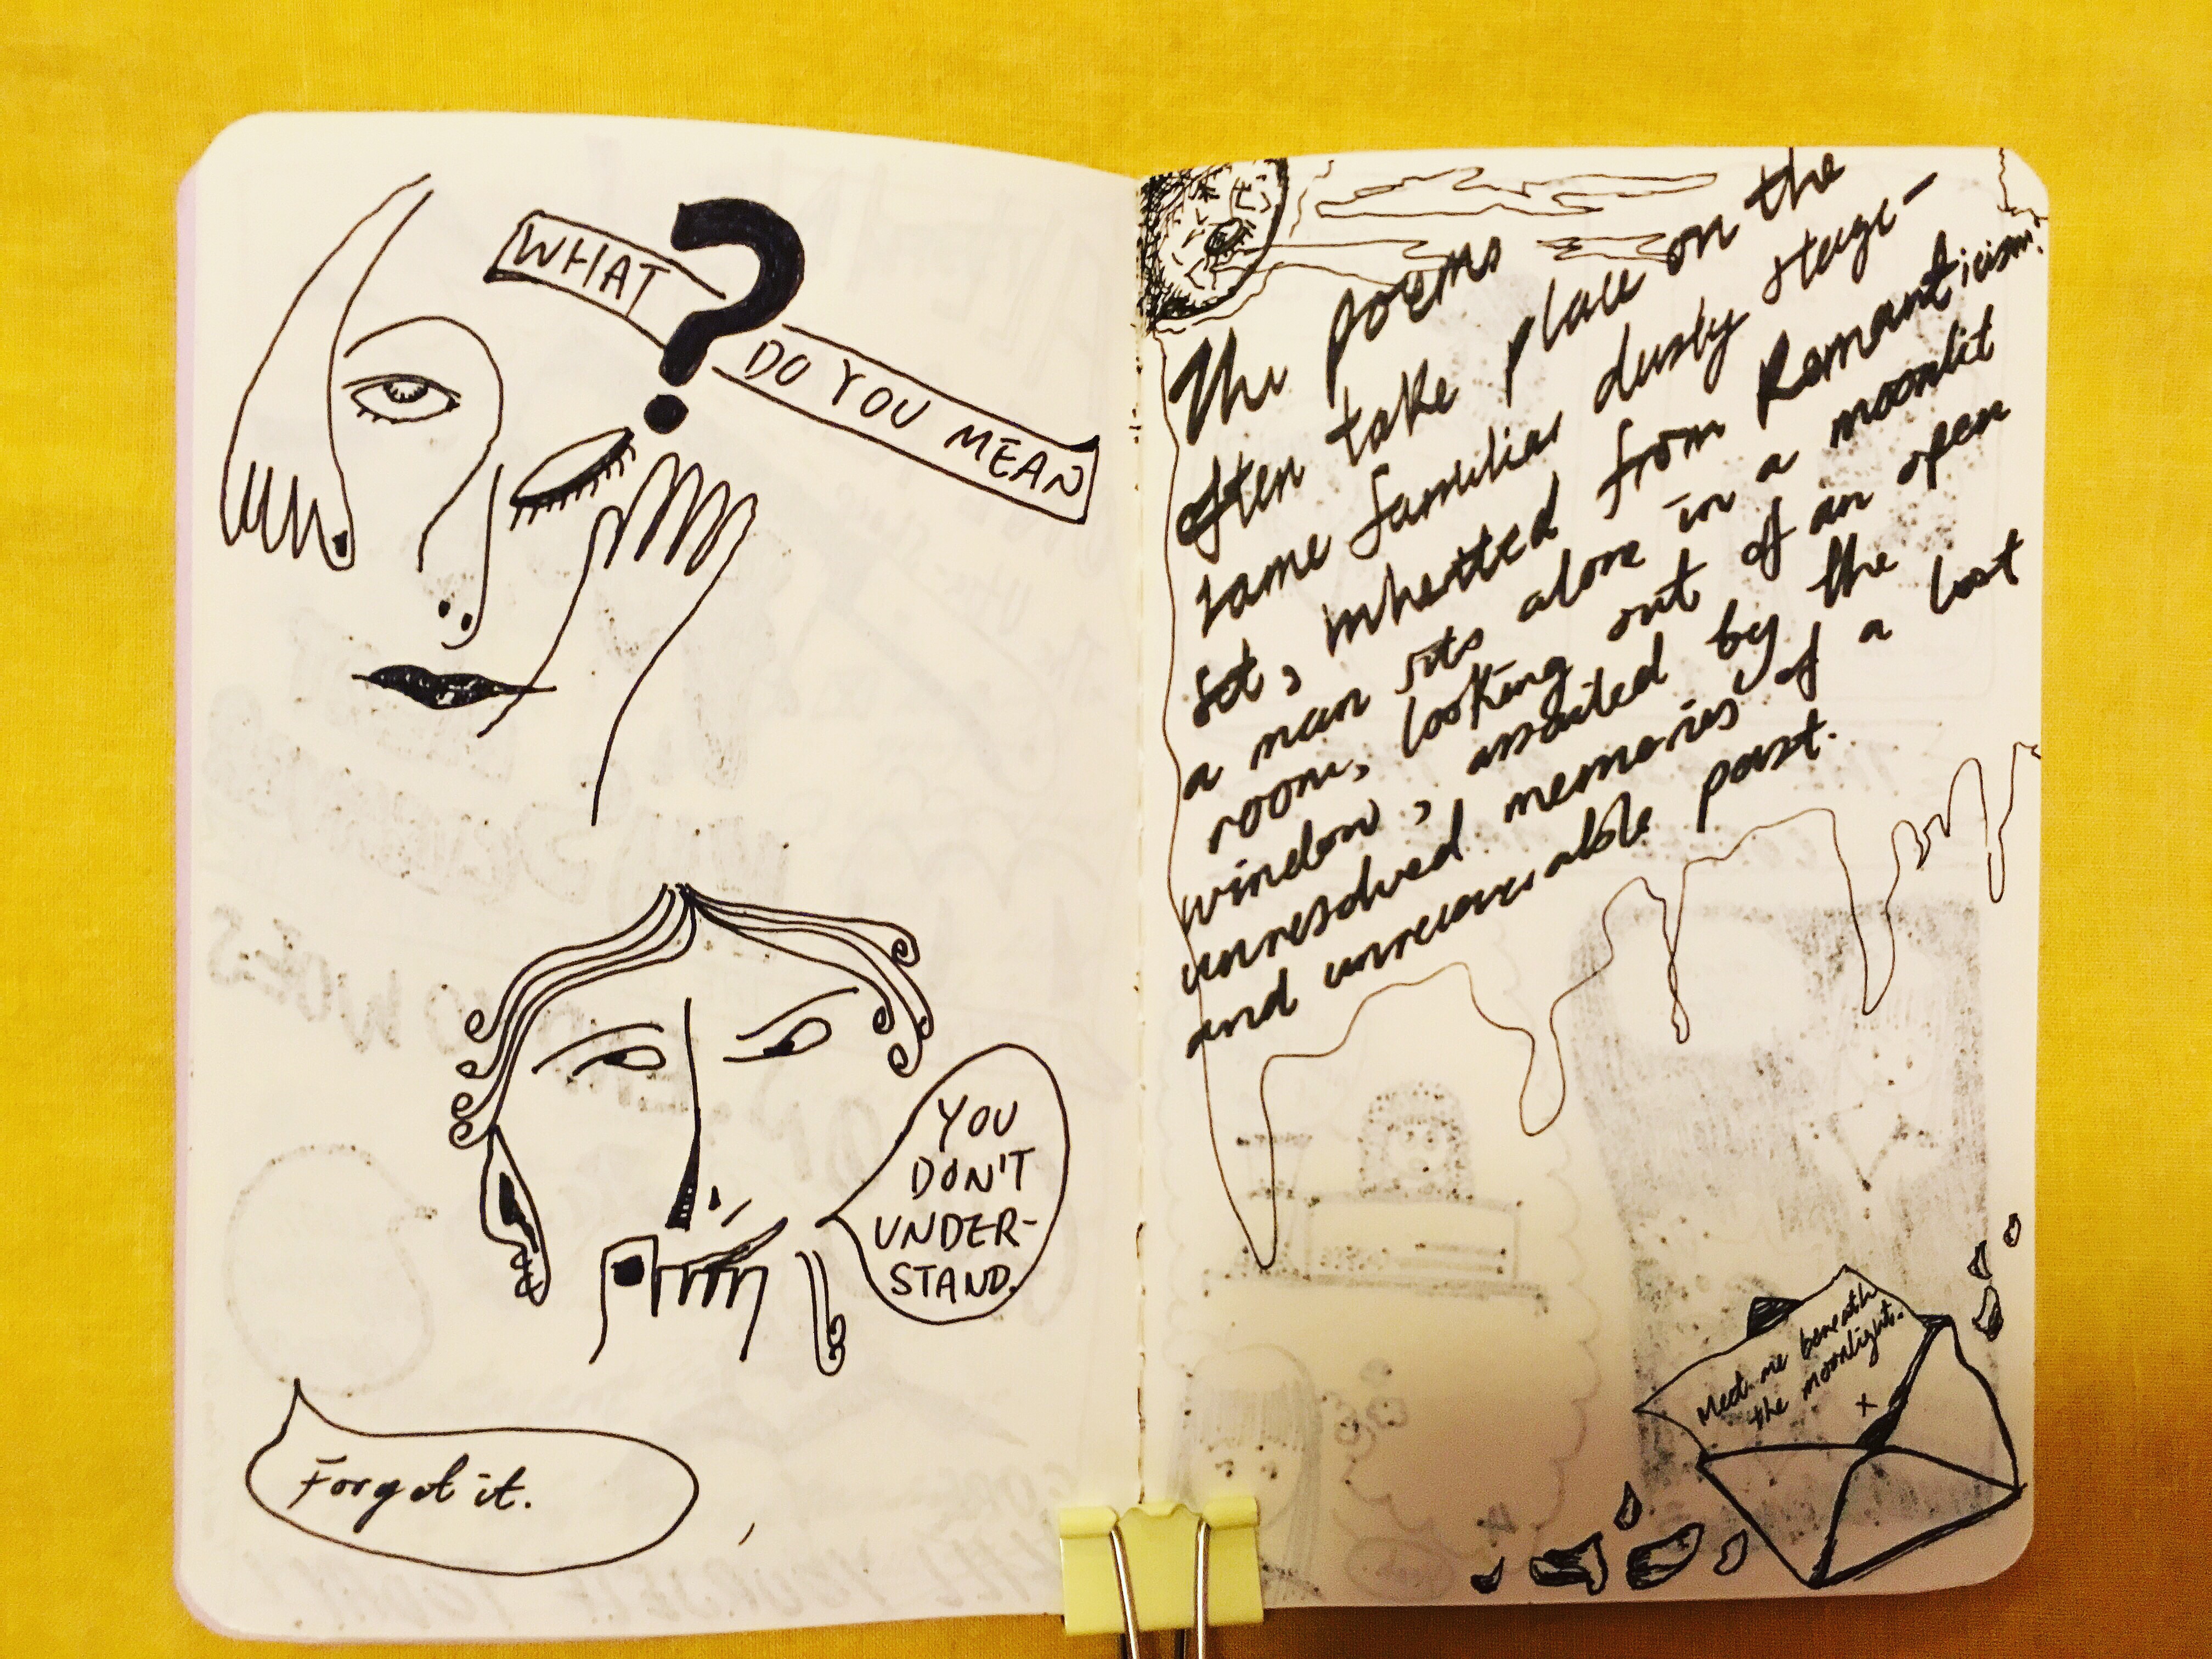 WHAT
?
DO YOU MEAN
YOU
DON'T
UNDER-
STAND.
Forget it.
The poems
often take place on the
same familiar dusty stage-
set, inherited from Romanticism:
a man sits alone in a moonlit
room, looking out of an open
window, assailed by the
unresolved memories of a lost
and unrecoverable past.
Meet me beneath
the moonlight.
x